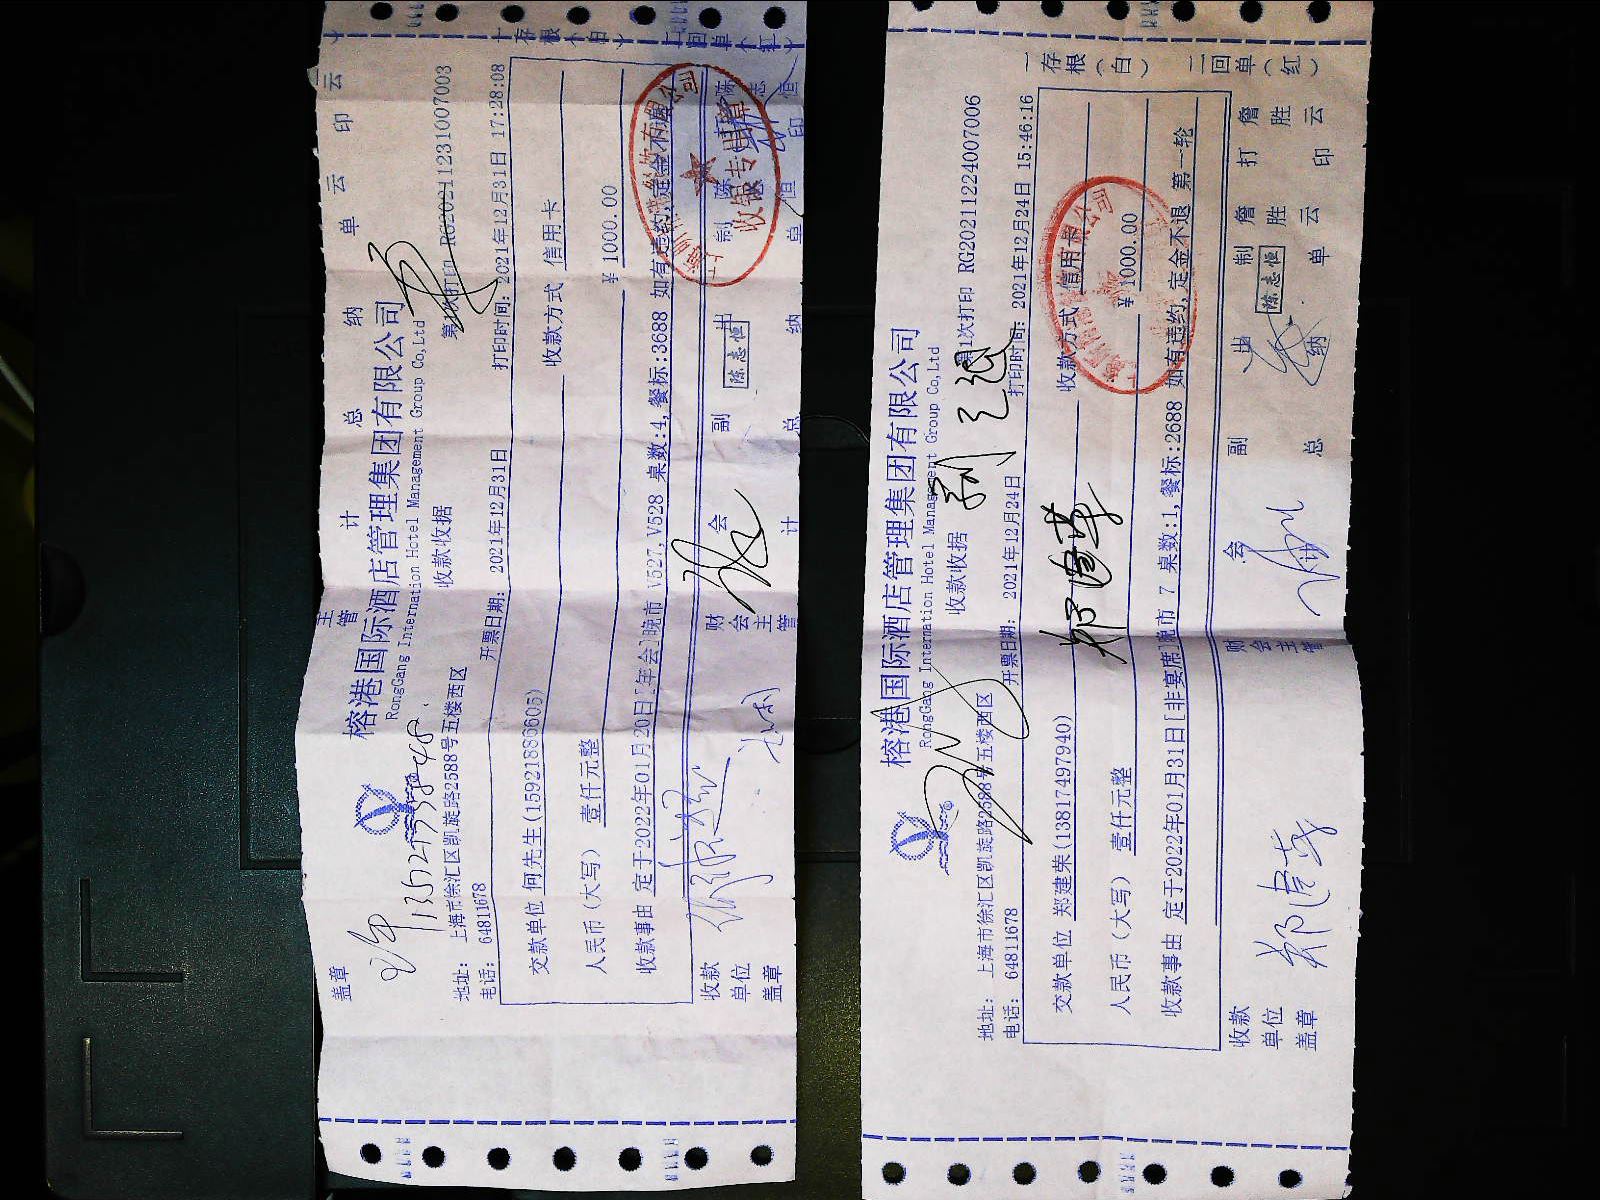 榕港国际酒店管理集团有限公司
RongGang International Hotel Management Group Co,Ltd
收款收据
第1次打印 RG20211231007003
地址: 上海市徐汇区凯旋路2588号五楼西区
电话: 64811678
开票日期: 2021年12月31日
打印时间: 2021年12月31日 17:28:08
交款单位 何先生(15921886605)
收款方式 信用卡
人民币(大写) 壹仟元整
¥ 1000.00
收款事由 定于2022年01月20日[年会]晚市 V527,V528 桌数:4,餐标:3688 如有违约,定金不退
收款单位盖章
财会主管
副
陈志恒
收银专用章
一存根(白) 二回单(红)
榕港国际酒店管理集团有限公司
RongGang International Hotel Management Group Co,Ltd
收款收据
第1次打印 RG20211224007006
地址: 上海市徐汇区凯旋路2588号五楼西区
电话: 64811678
开票日期: 2021年12月24日
打印时间: 2021年12月24日 15:46:16
交款单位 郑建荣(13817497940)
收款方式 信用卡
人民币(大写) 壹仟元整
¥ 1000.00
收款事由 定于2022年01月31日[非宴席]晚市 7 桌数:1,餐标:2688 如有违约,定金不退 第一轮
收款单位盖章
财会主管
会计
副总
出纳
陈志恒
制单
詹胜云
打印
詹胜云
一存根(白) 二回单(红)